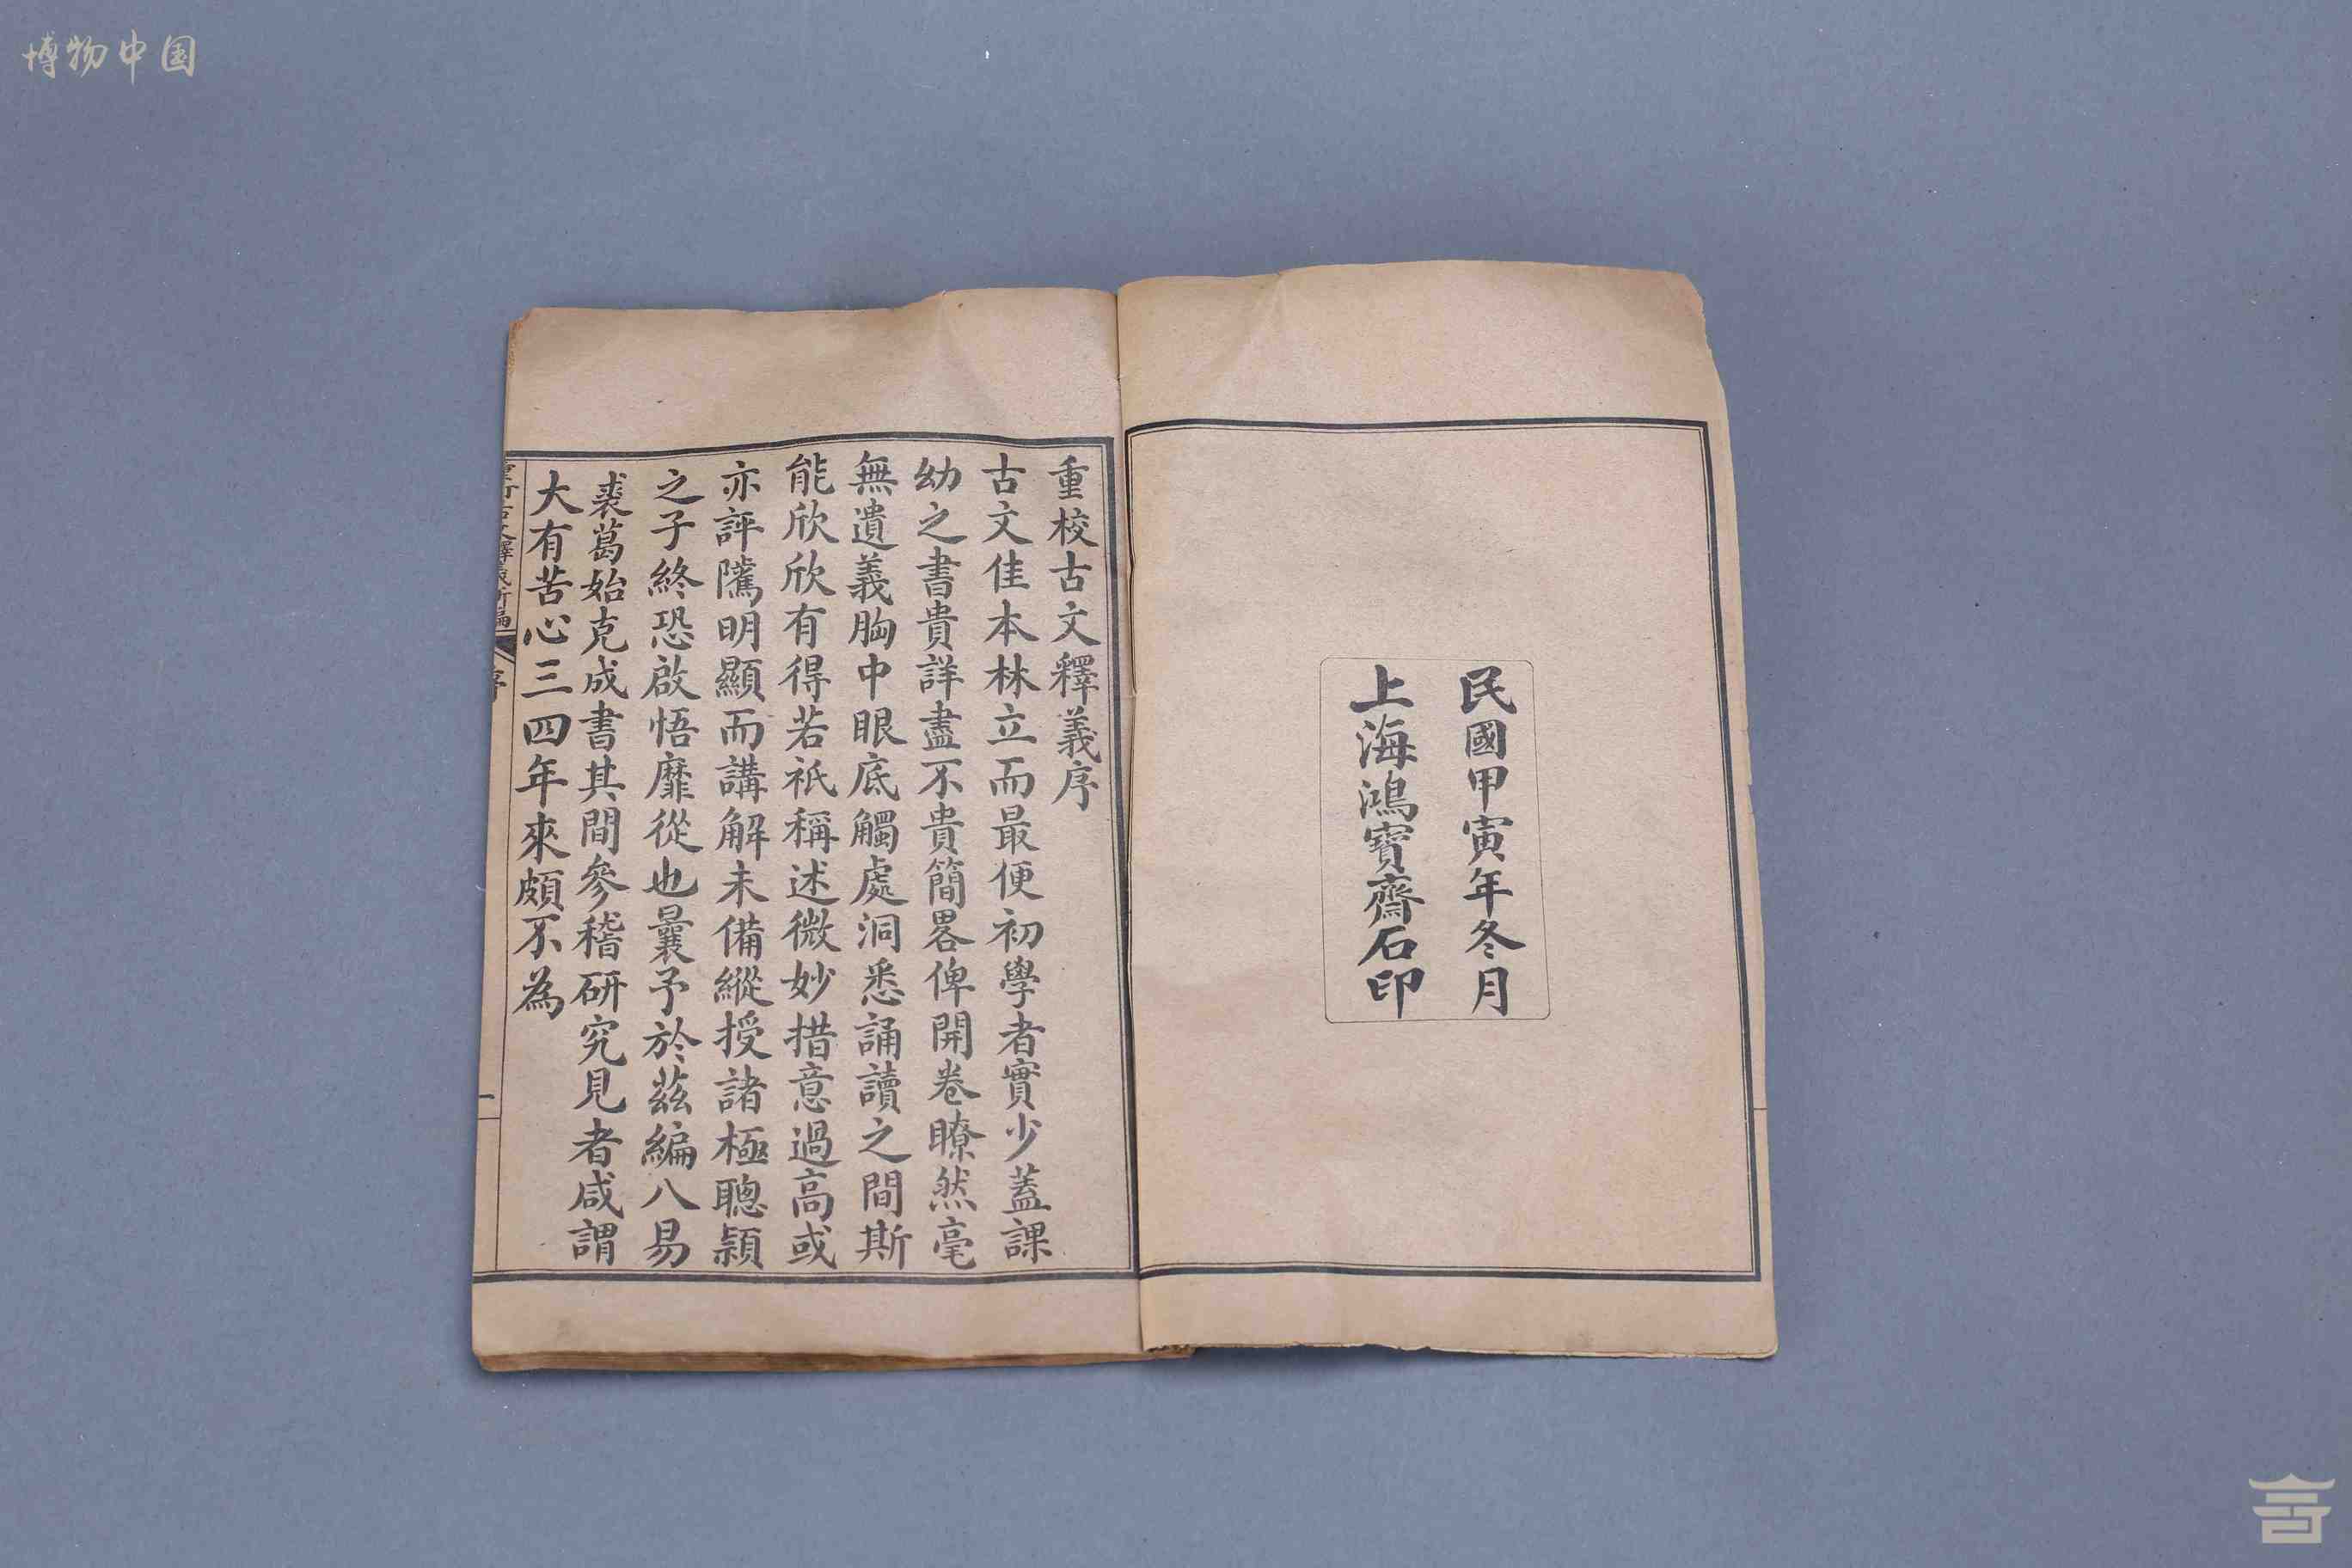 博物中国
民國甲寅年冬月
上海鴻寶齋石印
重校古文釋義序
古文佳本林立而最便初學者實少蓋課
幼之書貴詳盡不貴簡畧俾開卷瞭然毫
無遺義胸中眼底觸處洞悉誦讀之間斯
能欣欣有得若祇稱述微妙措意過高或
亦評隲明顯而講解未備縱授諸極聰穎
之子終恐啟悟靡從也曩予於茲編八易
裘葛始克成書其間參稽研究見者咸謂
大有苦心三四年來頗不為
古文釋義新編
序
一